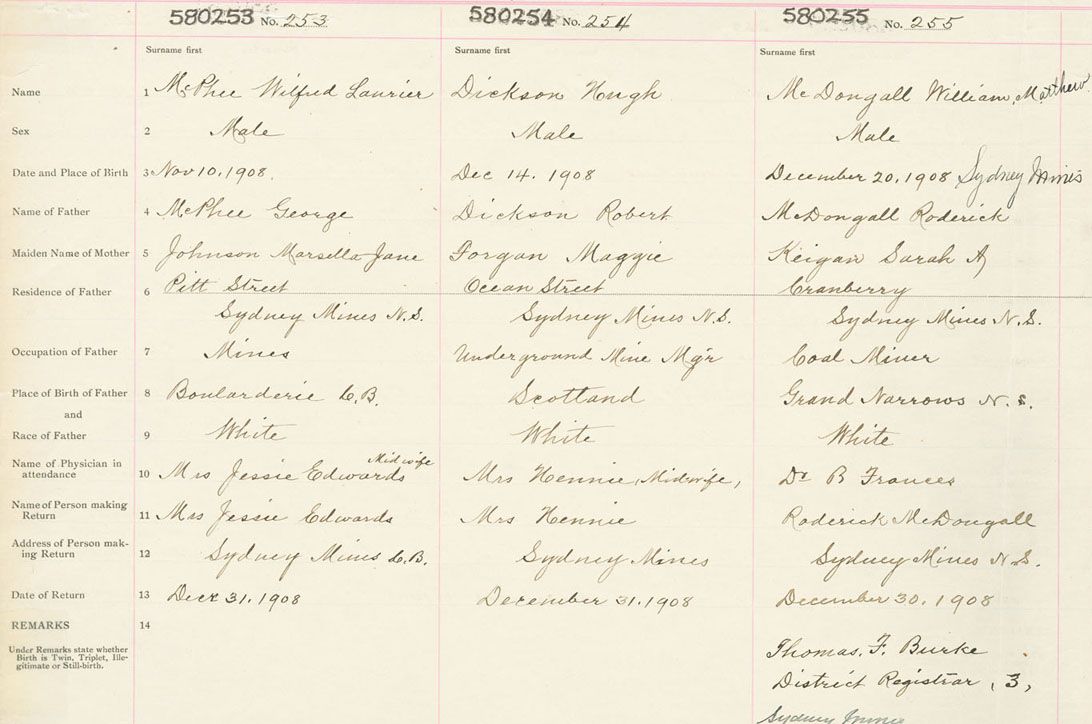 580253 No. 253 580254 No. 254 580255 No. 255
Surname first Surname first Surname first
Name 1 McPhee Wilfred Laurier Dickson Hugh McDongall William, Matthew
Sex 2 Male Male Male
Date and Place of Birth 3 Nov 10, 1908. Dec 14. 1908 December 20, 1908 Sydney Mines
Name of Father 4 McPhee George Dickson Robert McDongall Roderick
Maiden Name of Mother 5 Johnson Marsella Jane Forgan Maggie Keigan Sarah A
Residence of Father 6 Pitt Street Ocean Street Cranberry
Sydney Mines N.S. Sydney Mines N.S. Sydney Mines N.S.
Occupation of Father 7 Mines Underground Mine Mg'r Coal Miner
Place of Birth of Father 8 Boularderie C.B. Scotland Grand Narrows N.S.
and
Race of Father 9 White White White
Name of Physician in Midwife
attendance 10 Mrs Jessie Edwards Mrs Hennie, Midwife, Dr B Frances
Name of Person making
Return 11 Mrs Jessie Edwards Mrs Hennie Roderick McDongall
Address of Person mak-
ing Return 12 Sydney Mines C.B. Sydney Mines Sydney Mines N.S.
Date of Return 13 Dec 31, 1908 December 31, 1908 December 30, 1908
REMARKS 14
Under Remarks state whether
Birth is Twin, Triplet, Ille-
gitimate or Still-birth.
Thomas. F. Burke
District Registrar, 3,
Sydney Mines